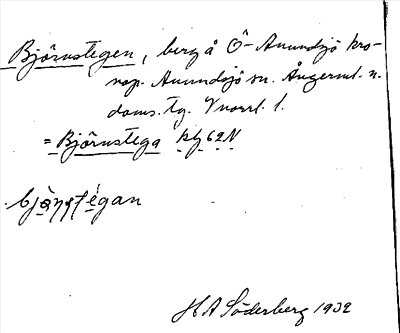 Björnstegen, berg å Ö-Anundsjö kro-
nop. Anundsjö sn. Ångerml. n.
doms. tg. Vnorrl. l.
= Björnstega kbl 62N
bjò̱ṇsté̱gan
H A Söderberg 1932